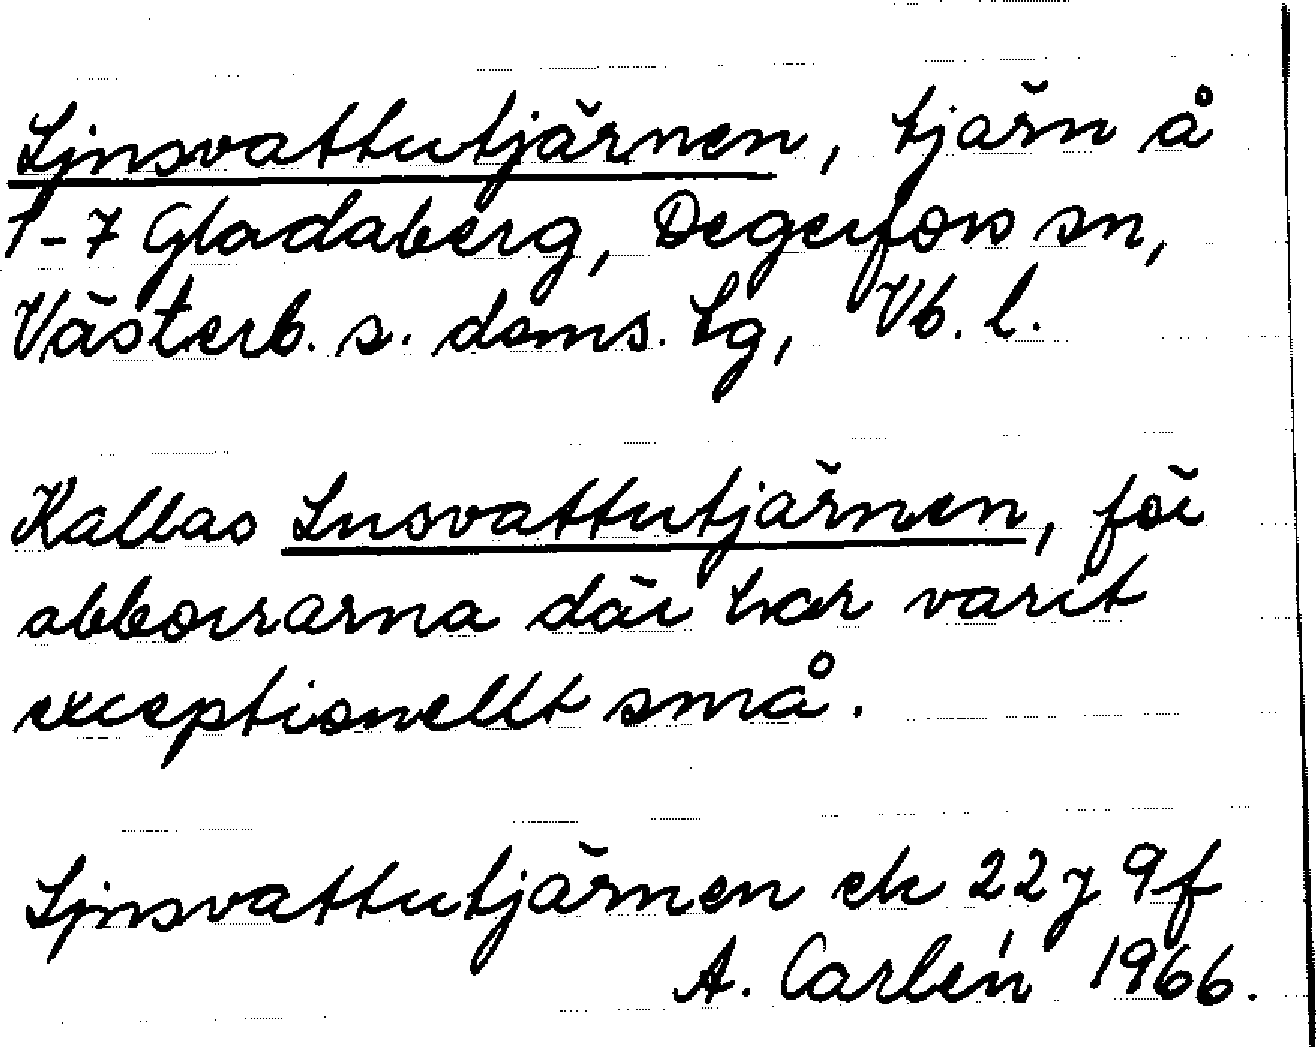 Ljnsvattutjärnen, tjärn å
1-7 Gladaberg, Degerfors sn,
Västerb. s. doms. Lg, Vb. l.
Kallas Lusvattutjärnen, för
abborrarna där har varit
exceptionellt små.
Ljnsvattutjärnen ek 22 j 9 f
A. Carlén 1966.